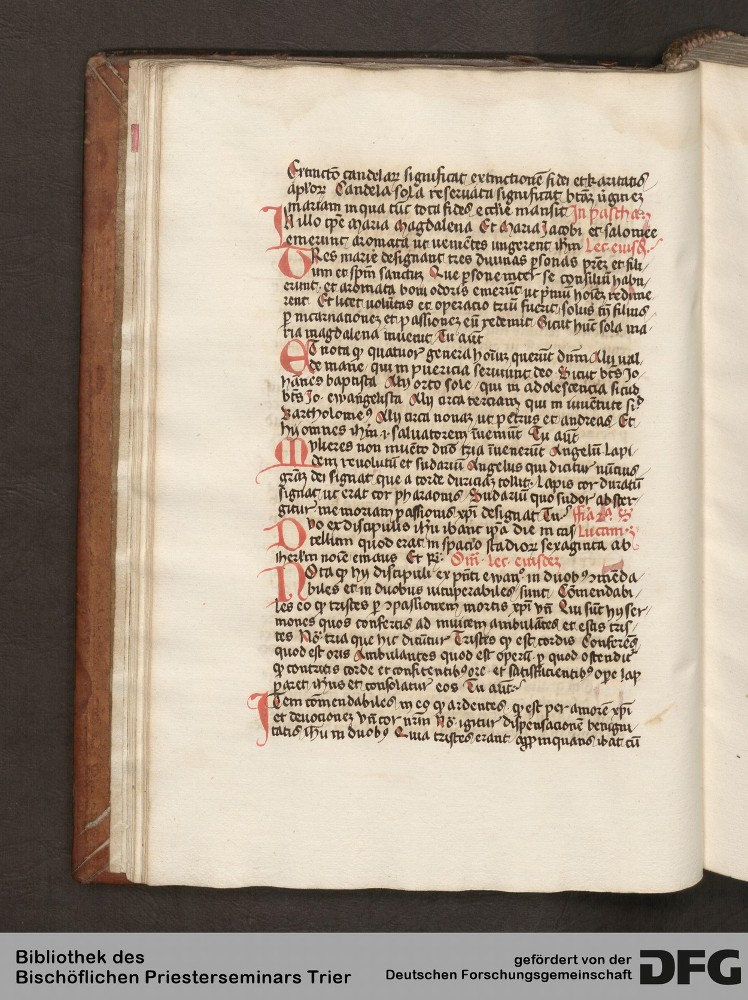 Extinctō candelaꝝ significat extinctionē fidei et karitatis
aplōꝝ Candela sola reservata significat btām v̄ginē
mariam in qua tūc tota fides ecctīe mansit In pascha
In illo tpē Maria Magdalena Et Maria Jacobi et salomee
emerunt aromata ut venientes ungerent ihm Lec eiusd
Tres marie designant tres divinas psonas prēꝫ et fili
um et spm sanctū Que psone inter se consilium habu
erunt et aromata boni odoris emerūt ut pmū hoīeꝫ redime
rent Et licet voluntas et operacio triū fuerit solus tn̄ filius
p incarnationeꝫ et passioneꝫ eū redemit Sicut hūc sola ma
ria magdalena invenit Tu aūt
Et nota qꝫ quatuor genera hoīuꝫ querūt dnm Alij val
de mane qui in puericia serviunt deo Sicut btūs Jo
hānes baptista Alij orto sole qui in adolescencia sicud
btūs Jo ewangelista Alij circa terciam qui in iuventute sic
Bartholomeꝰ Alij circa nonaꝫ ut petrus et andreas Et
hij omnes ihm .i. salvatorem īveniūt Tu aūt
Mulieres non invēto dno tria īvenerūt Angelū Lapi
dem revolutū et sudariū Angelus qui dicitur nūcius
grām dei signat que a corde duriciaꝫ tollit Lapis cor duratū
signat ut erat cor pharaonis Sudariū quo sudor abster
gitur memoriam passionis xpi designat Tu fia 2a S
Duo ex discipulis ihu ibant ipa die in cas Lucam
tellum quod erat in spacio stadioꝝ sexaginta ab
iherlm noīe emaus Et R Om lec eiusdeꝫ
Nota qꝫ hij discipuli ex pnti ewan in duobꝰ ꝯmēda
biles et in duobus vituperabiles sunt Cōmendabi
les eo qꝫ tristes p ꝯpassionem mortis xpi vn̄ Qui sūt hij ser
mones quos confertis ad invicem ambulātes et estis tris
tes No tria que hic dicūtur Tristes qꝫ est cordis Conferēs
quod est oris Ambulantes quod est operū p quod ostendit
qꝫ contritis corde et confitentibꝰ ore et satisfacientibꝰ ope sap
paret ihus et consolatur eos Tu aūt
Item cōmendabiles in eo qꝫ ardentes qꝫ est per amorē xpi
et devotioneꝫ vn̄ cor nrm No igitur dispensacionē benigni
tatis ihu in duobꝰ Quia tristes erant appinquans ibat cū
Bibliothek des
Bischöflichen Priesterseminars Trier
gefördert von der
Deutschen Forschungsgemeinschaft
DFG